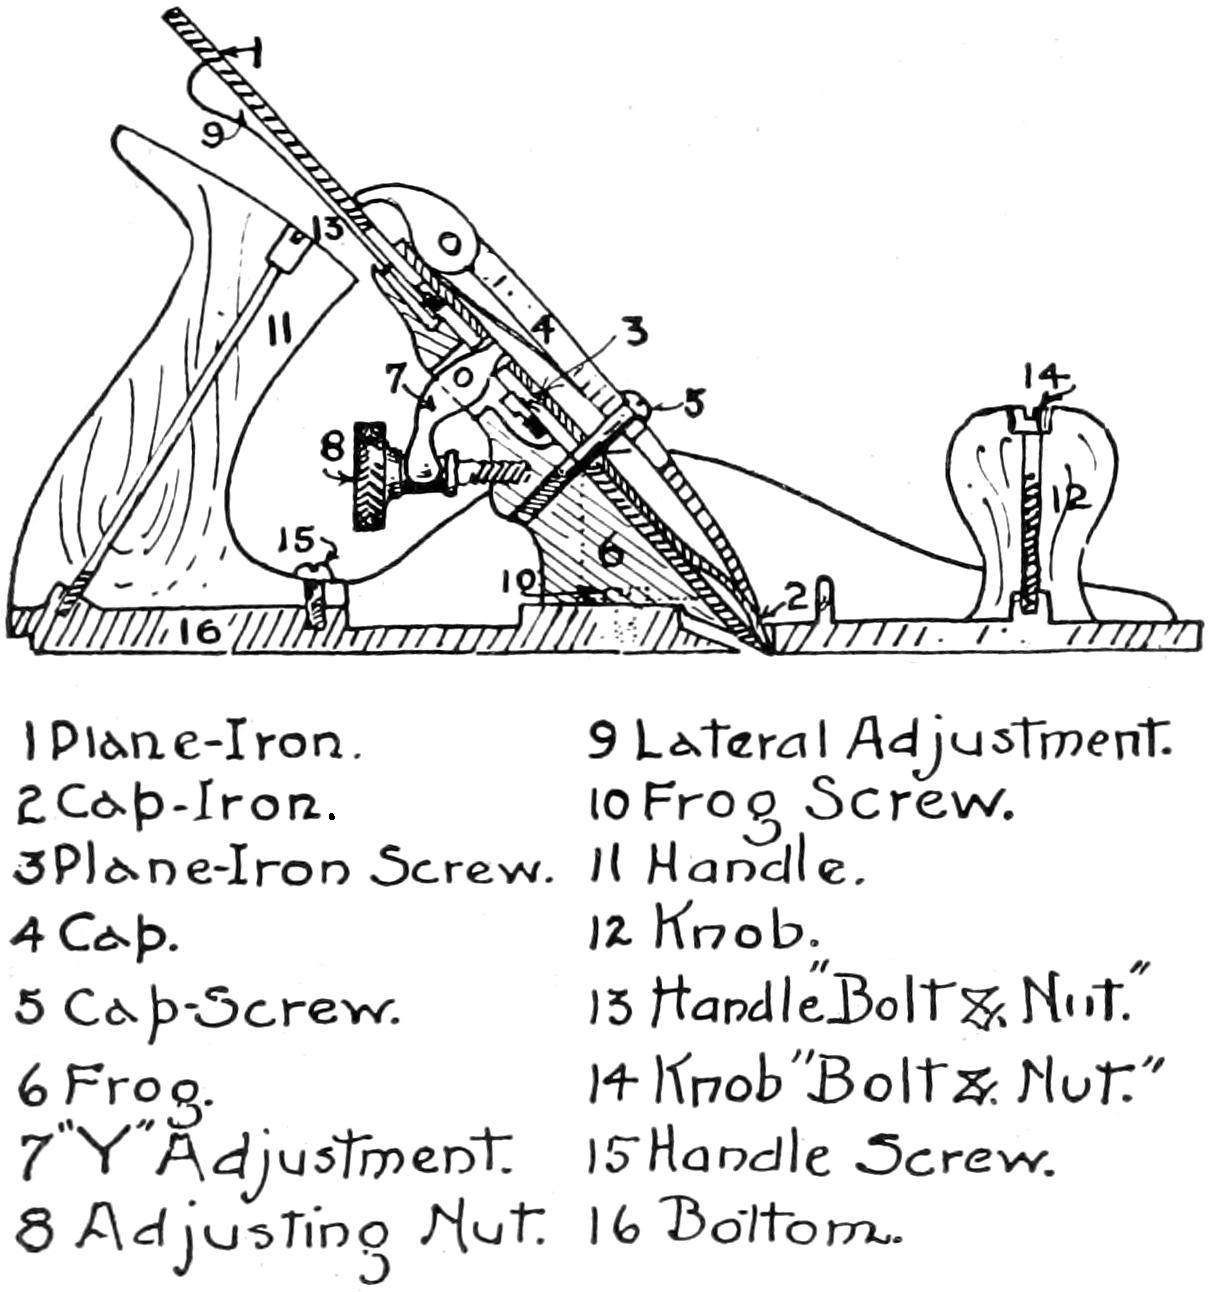 1
9
13
11
4
3
7
5
14
8
12
15
6
10
2
16
1 Plane-Iron.
2 Cap-Iron.
3 Plane-Iron Screw.
4 Cap.
5 Cap-Screw.
6 Frog.
7 "Y" Adjustment.
8 Adjusting Nut.
9 Lateral Adjustment.
10 Frog Screw.
11 Handle.
12 Knob.
13 Handle "Bolt & Nut."
14 Knob "Bolt & Nut."
15 Handle Screw.
16 Bottom.